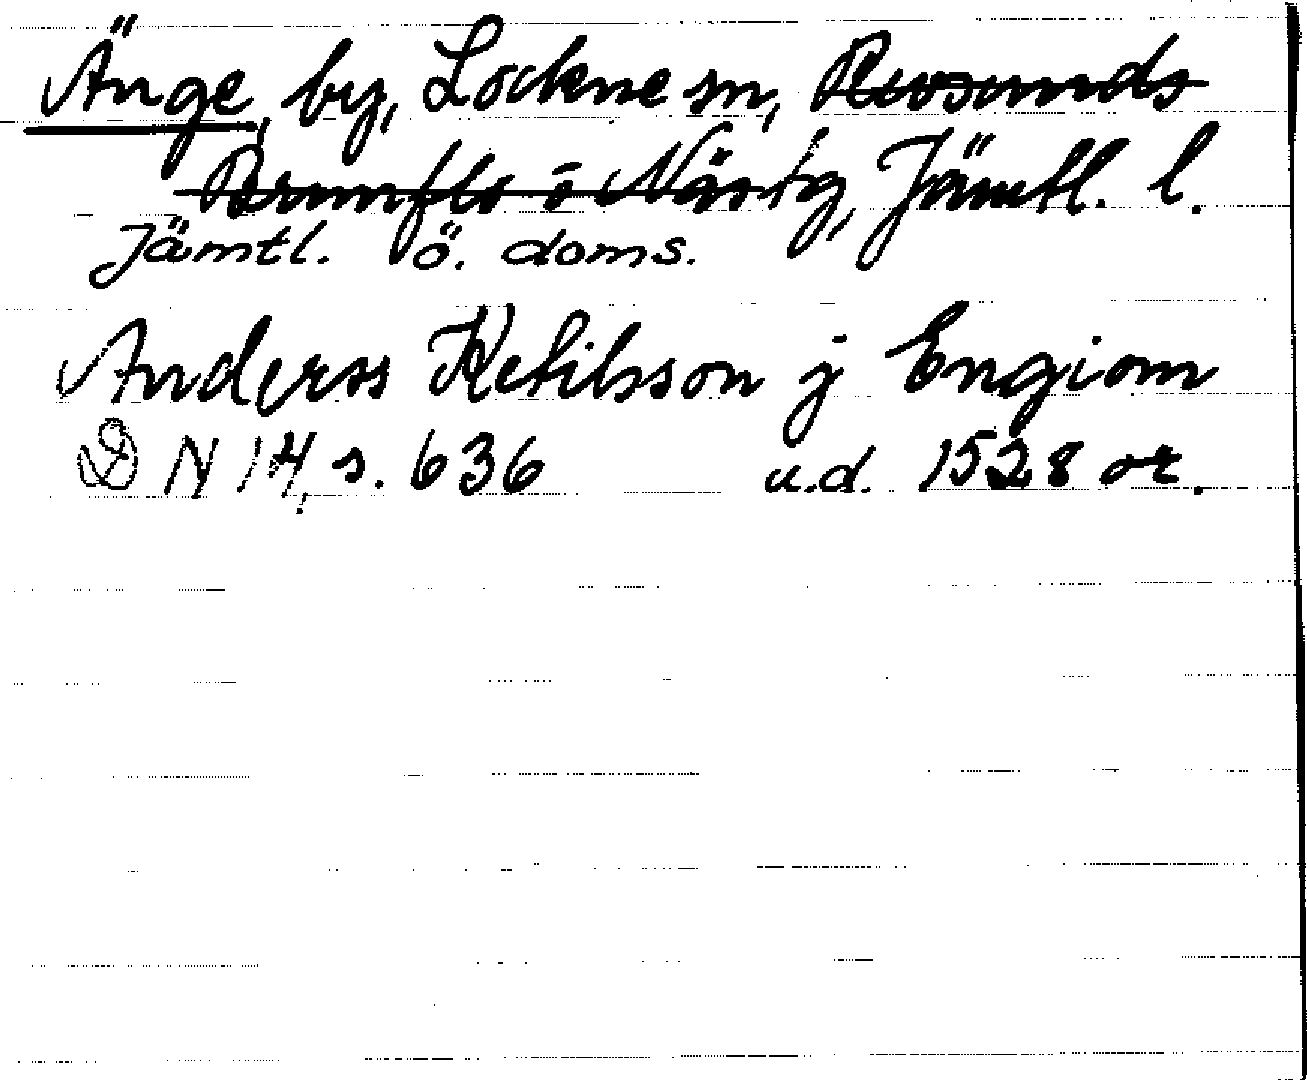 Änge, by, Lockne sn, Revsunds
Brunflo o Näs tg, Jämtl. l.
Jämtl. ö. doms.
Anderss Ketilsson j Engiom
DN 14, s. 636 u.d. 1528 or.